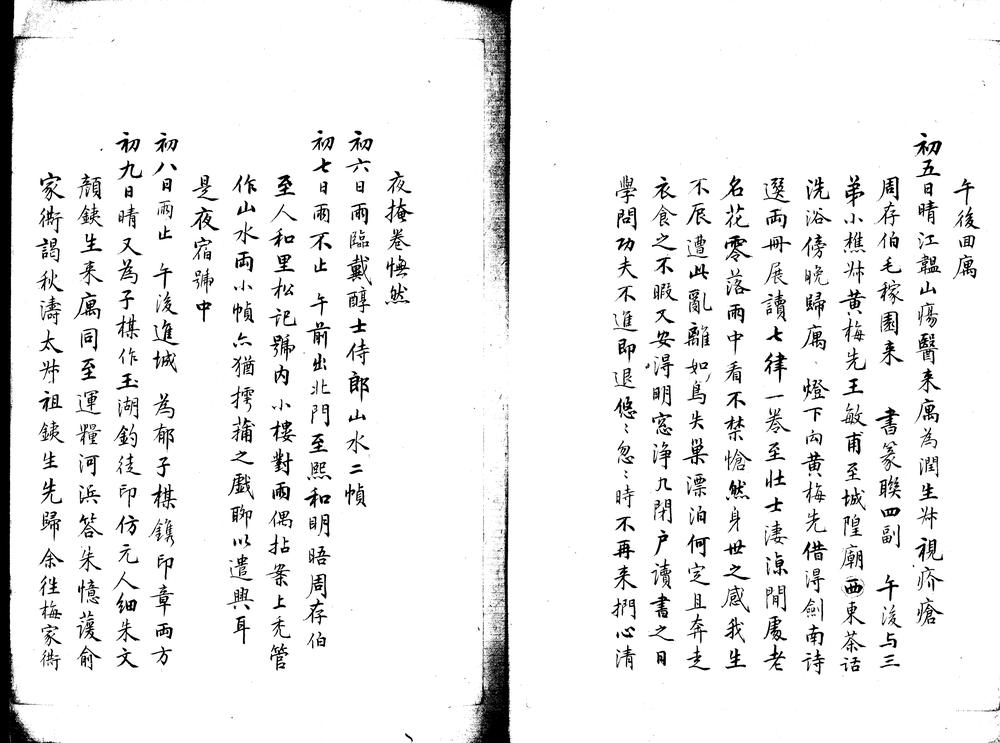 午後回寓
初五日晴江韞山瘍醫来寓為潤生𠦑視疥瘡
周存伯毛稼圃来　書篆聯四副　午後与三
弟小樵𠦑黄梅先王敏甫至城隍廟西東茶话
洗浴傍晚歸寓　燈下向黄梅先借得劍南詩
選両冊展讀七律一卷至壮士淒凉閒處老
名花零落雨中看不禁愴然身世之感我生
不辰遭此亂離如鳥失巢漂泊何定且奔走
衣食之不暇又安得明窓浄几閉户读書之日
學問功夫不進即退悠〻忽〻時不再来捫心清
夜掩卷憮然
初六日雨臨戴醇士侍郎山水二幀
初七日雨不止　午前出北門至熙和明晤周存伯
至人和里松记號内小樓對雨偶拈案上禿管
作山水両小幀亦猶摴蒱之戲聊以遣興耳
是夜宿號中
初八日雨止　午後進城　為郁子楳鐫印章両方
初九日晴又為子楳作玉湖釣徒印仿元人细朱文
顔鋏生来寓同至運糧河浜答朱憶蘐俞
家衖謁秋濤太𠦑祖鋏生先歸余往梅家衖